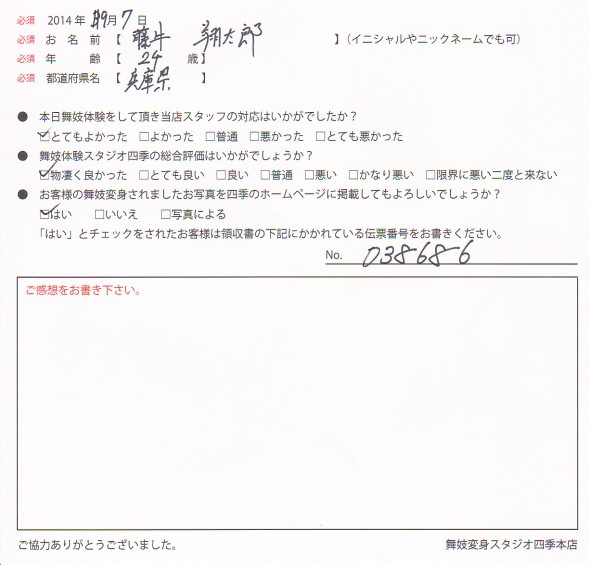 必須 2014年 9月 7日
必須 お 名 前 【 藤井 翔太郎 】(イニシャルやニックネームでも可)
必須 年 齢 【 24 歳】
必須 都道府県名 【 兵庫県 】
● 本日舞妓体験をして頂き当店スタッフの対応はいかがでしたか?
☑とてもよかった □よかった □普通 □悪かった □とても悪かった
● 舞妓体験スタジオ四季の総合評価はいかがでしょうか?
☑物凄く良かった □とても良い □良い □普通 □悪い □かなり悪い □限界に悪い二度と来ない
● お客様の舞妓変身されましたお写真を四季のホームページに掲載してもよろしいでしょうか?
☑はい □いいえ □写真による
「はい」とチェックをされたお客様は領収書の下記にかかれている伝票番号をお書きください。
No. 038686
ご感想をお書き下さい。
ご協力ありがとうございました。 舞妓変身スタジオ四季本店